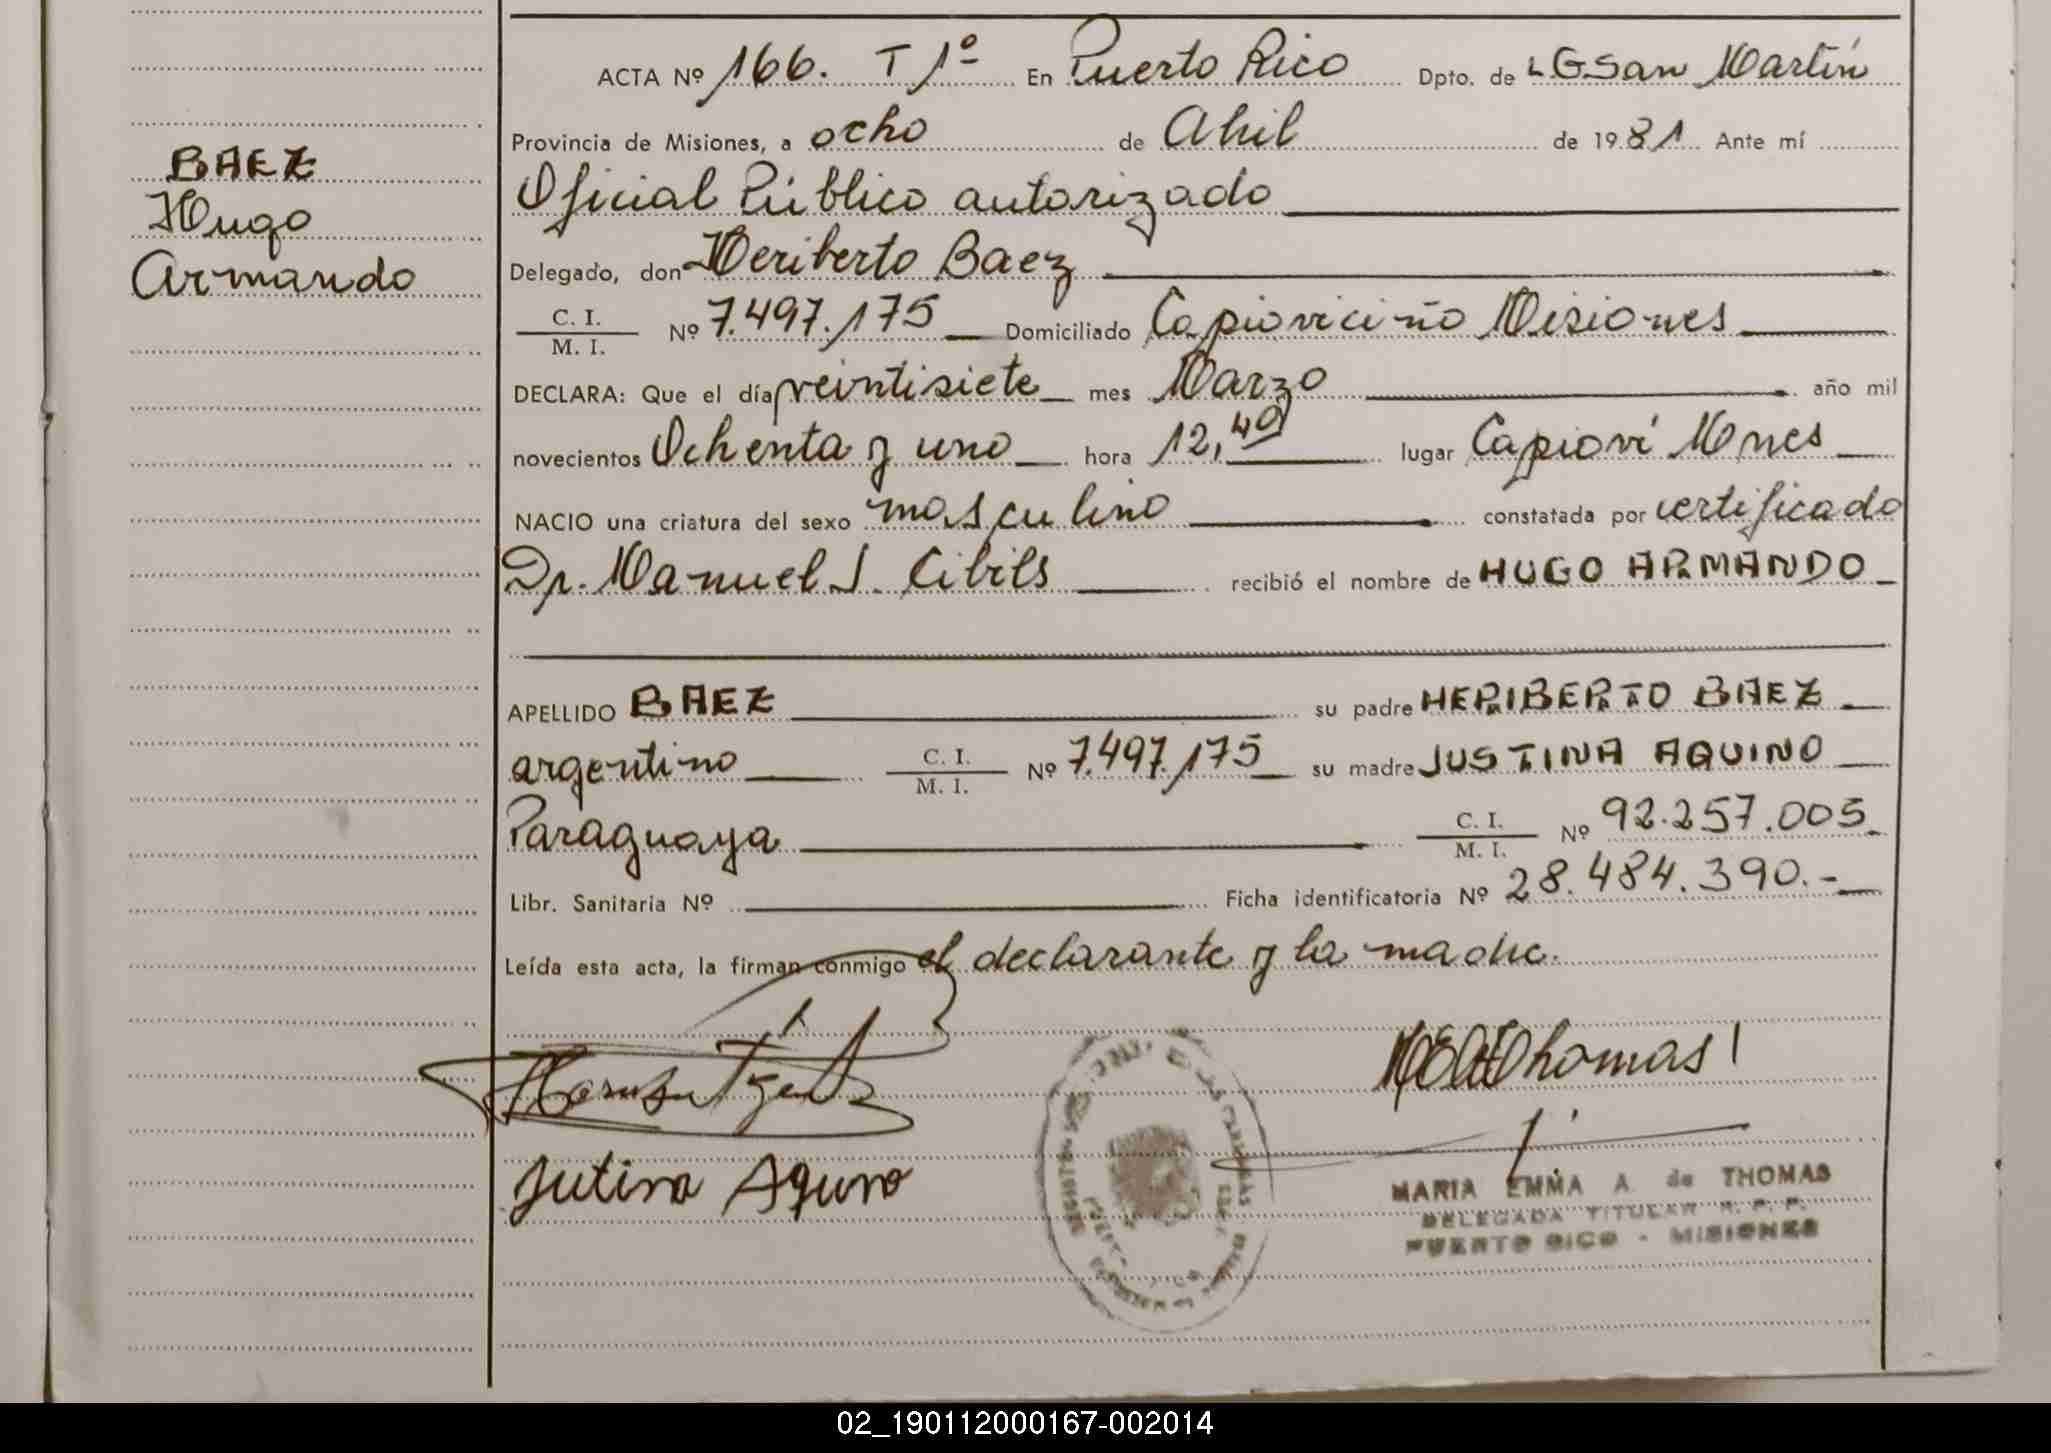 ACTA Nº 166. T 1º En Puerto Rico Dpto. de L G San Martín
Provincia de Misiones, a ocho de Abril de 1981 Ante mí
BAEZ
Hugo
Armando
Oficial Público autorizado
Delegado, don Heriberto Baez
C. I.
M. I.
Nº 7.497.175 Domiciliado Capiovíciño Misiones
DECLARA: Que el día veintisiete mes Marzo año mil
novecientos Ochenta y uno hora 12,40 lugar Capioví Mnes
NACIO una criatura del sexo masculino constatada por certificado
Dr. Manuel J. Cibils recibió el nombre de HUGO ARMANDO
APELLIDO BAEZ su padre HERIBERTO BAEZ
argentino C. I. M. I. Nº 7.497.175 su madre JUSTINA AQUINO
Paraguaya C. I. M. I. Nº 92.257.005
Libr. Sanitaria Nº Ficha identificatoria Nº 28.484.390.-
Leída esta acta, la firman conmigo el declarante y la madre.
Jutina Aquino
MARIA EMMA A. de THOMAS
DELEGADA TITULAR R. P. P.
PUERTO RICO - MISIONES
02_190112000167-002014